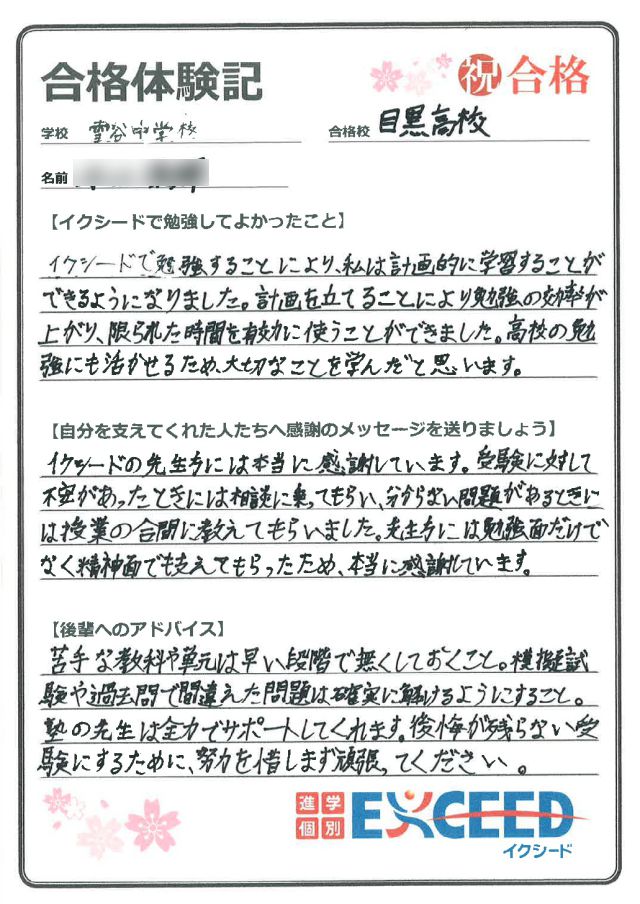 合格体験記
祝 合格
学校 雪谷中学校
合格校 目黒高校
名前
【イクシードで勉強してよかったこと】
イクシードで勉強することにより、私は計画的に学習することが
できるようになりました。計画を立てることにより勉強の効率が
上がり、限られた時間を有効に使うことができました。高校の勉
強にも活かせるため、大切なことを学んだと思います。
【自分を支えてくれた人たちへ感謝のメッセージを送りましょう】
イクシードの先生方には本当に感謝しています。受験に対して
不安があったときには相談に乗ってもらい、分からない問題があるときに
は授業の合間に教えてもらいました。先生方には勉強面だけで
なく精神面でも支えてもらったため、本当に感謝しています。
【後輩へのアドバイス】
苦手な教科や単元は早い段階で無くしておくこと。模擬試
験や過去問で間違えた問題は確実に解けるようにすること。
塾の先生は全力でサポートしてくれます。後悔が残らない受
験にするために、努力を惜しまず頑張ってください。
進学
個別
EXCEED
イクシード